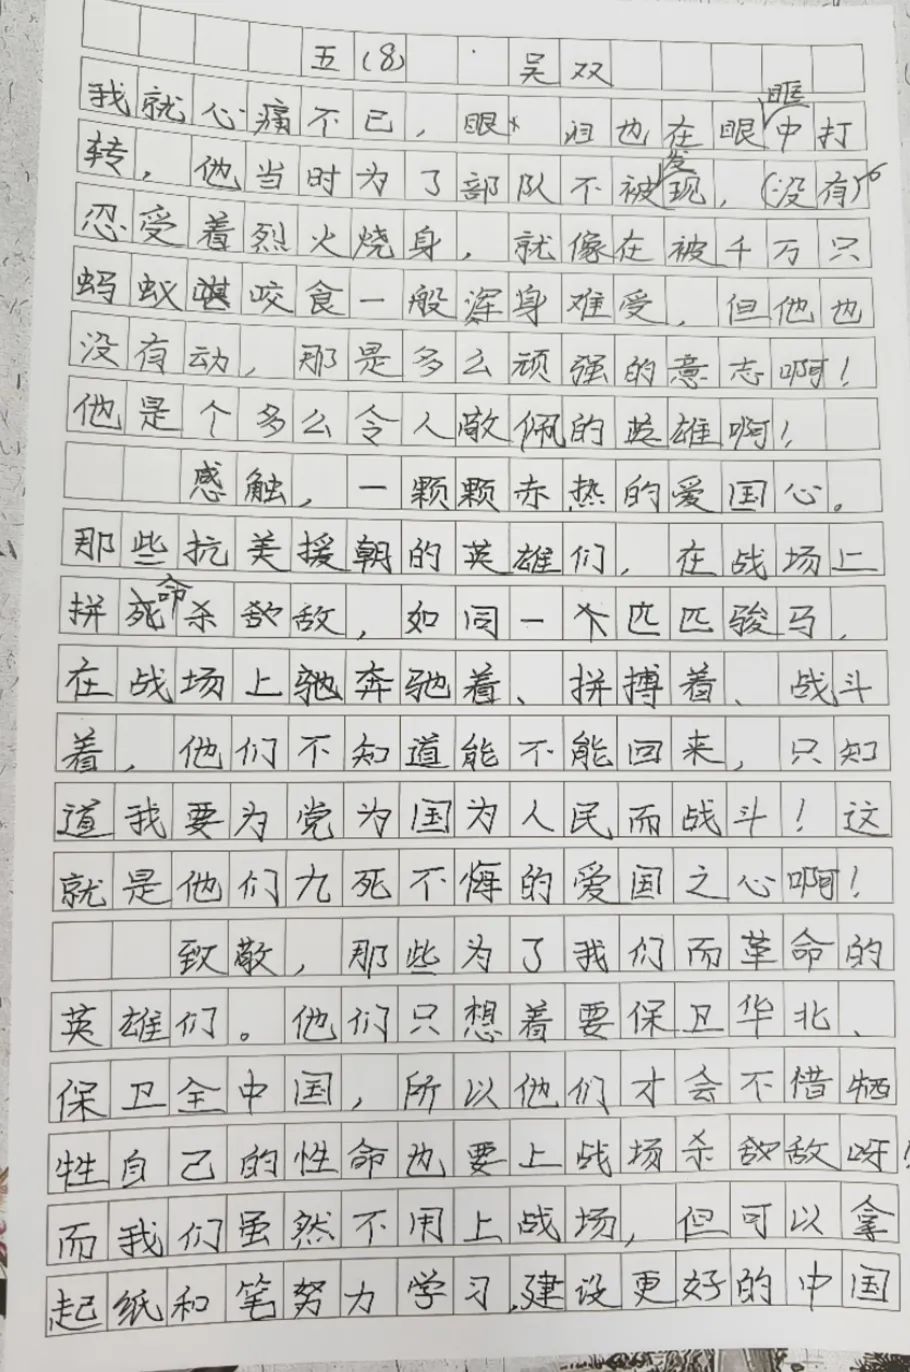 五(8) 吴双
我就心痛不已，眼泪也在眼眶中打
转，他当时为了部队不被发现，(没有)
忍受着烈火烧身，就像在被千万只
蚂蚁咬食一般浑身难受，但他也
没有动，那是多么顽强的意志啊！
他是个多么令人敬佩的英雄啊！
感触，一颗颗赤热的爱国心。
那些抗美援朝的英雄们，在战场上
拼死命杀敌，如同一个匹匹骏马，
在战场上驰奔驰着、拼搏着、战斗
着，他们不知道能不能回来，只知
道我要为党为国为人民而战斗！这
就是他们九死不悔的爱国之心啊！
致敬，那些为了我们而革命的
英雄们。他们只想着要保卫华北、
保卫全中国，所以他们才会不惜牺
牲自己的性命也要上战场杀敌呀！
而我们虽然不用上战场，但可以拿
起纸和笔努力学习，建设更好的中国